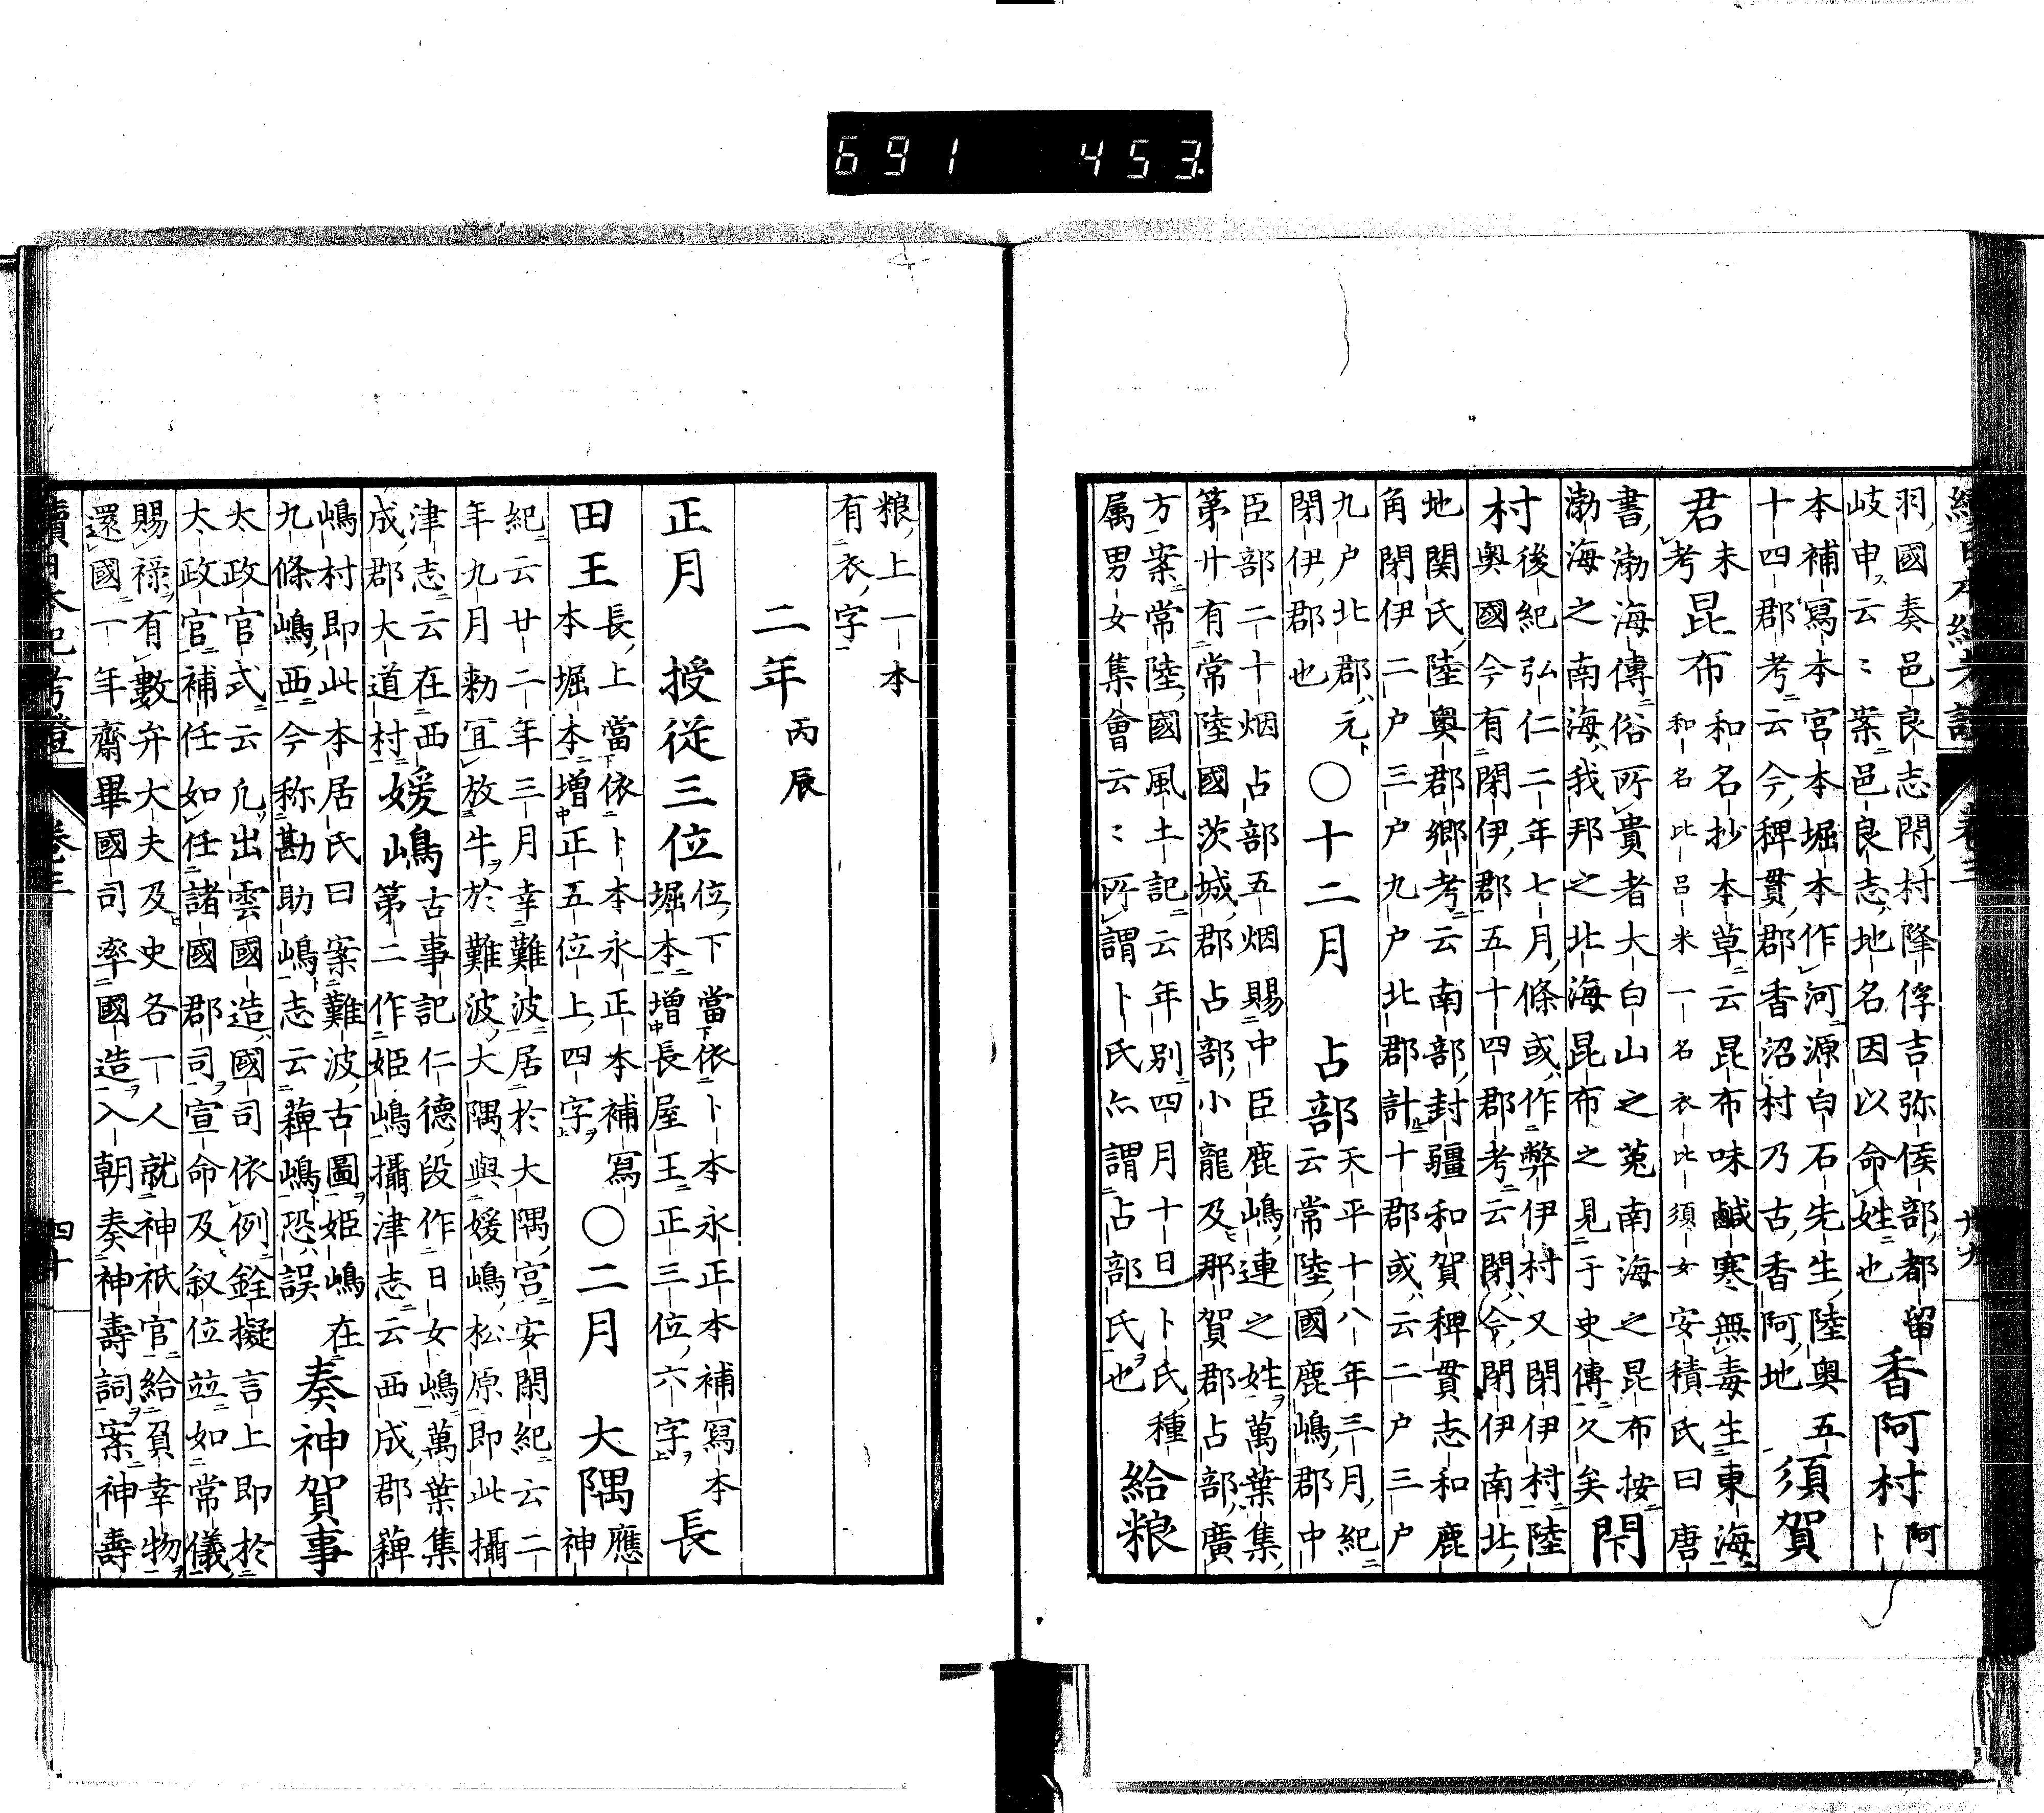 691 453
續日本紀考證 卷三 卅九
羽國奏邑良志閇村降俘吉弥侯部都留
岐申云〻案邑良志地名因以命姓也
香阿村
阿卜
本補寫本宮本堀本作河源白石先生陸奥五
十四郡考云今稗貫郡香沼村乃古香阿地
須賀
君
未考
昆布
和名抄本草云昆布味鹹寒無毒生東海
和名比呂米一名衣比須女安積氏曰唐
書渤海傳俗所貴者大白山之菟南海之昆布按
渤海之南海我邦之北海昆布之見于史傳久矣
閇
村
後紀弘仁二年七月條或作弊伊村又閇伊村陸
奥國今有閇伊郡五十四郡考云閇今閇伊南北
地関氏陸奥郡郷考云南部封疆和賀稗貫志和鹿
角閇伊二户三户九户北郡計十郡或云二户三户
九户北郡元
閇伊郡也
○十二月 占部
天平十八年三月紀
云常陸國鹿嶋郡中
臣部二十烟占部五烟賜中臣鹿嶋連之姓萬葉集
第廿有常陸國茨城郡占部小龍及那賀郡占部廣
方案常陸國風土記云年別四月十日卜氏種
属男女集會云〻所謂卜氏亦謂占部氏也
給粮
粮上一本
有衣字
二年丙辰
正月 授従三位
位下當依卜本永正本補寫本
堀本增長屋王正三位六字
長
田王
長上當依卜本永正本補寫
本堀本增正五位上四字
○二月 大隅
應
神
紀云廿二年三月幸難波居於大隅宮安閑紀云二
年九月勅冝放牛於難波大隅與媛嶋松原即此攝
津志云在西
成郡大道村
媛嶋
古事記仁德段作日女嶋萬葉集
第二作姫嶋攝津志云西成郡稗
嶋村即此本居氏曰案難波古圖姫嶋在
九條嶋西今称勘助嶋志云稗嶋恐誤
奏神賀事
太政官式云凡出雲國造國司依例銓擬言上即於
太政官補任如任諸國郡司宣命及叙位並如常儀
賜禄有數弁大夫及史各一人就神祇官給負幸物
還國一年齋畢國司率國造入朝奏神壽詞案神壽
續日本紀考證 卷三 四十